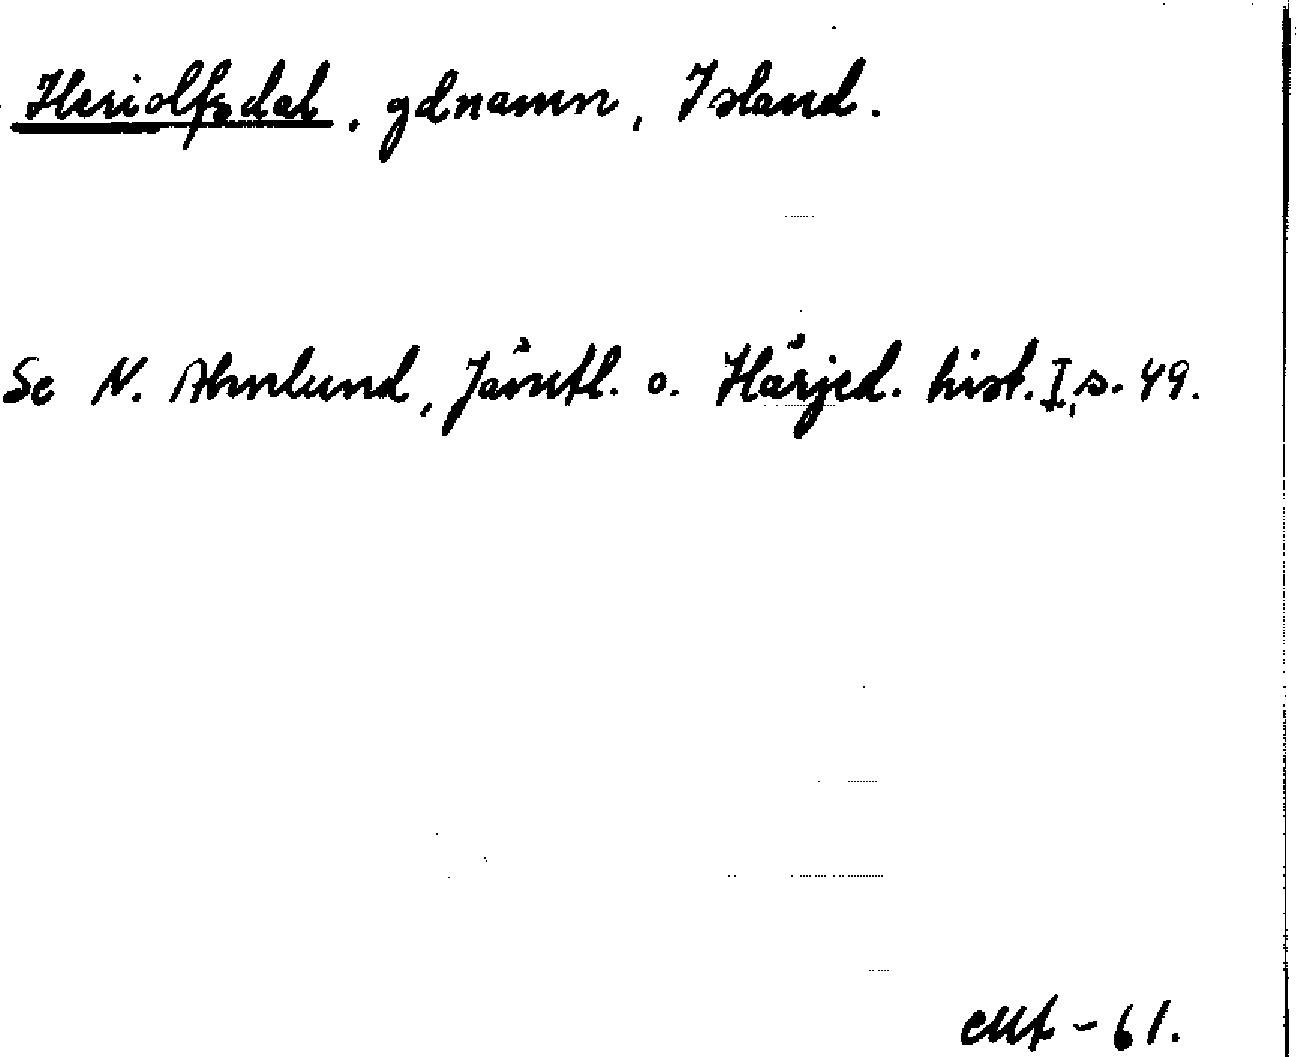 Heriolfsdal, gdnamn, Island.
Se N. Ahnlund, Jämtl. o. Härjed. hist. I, s. 49.
-61.